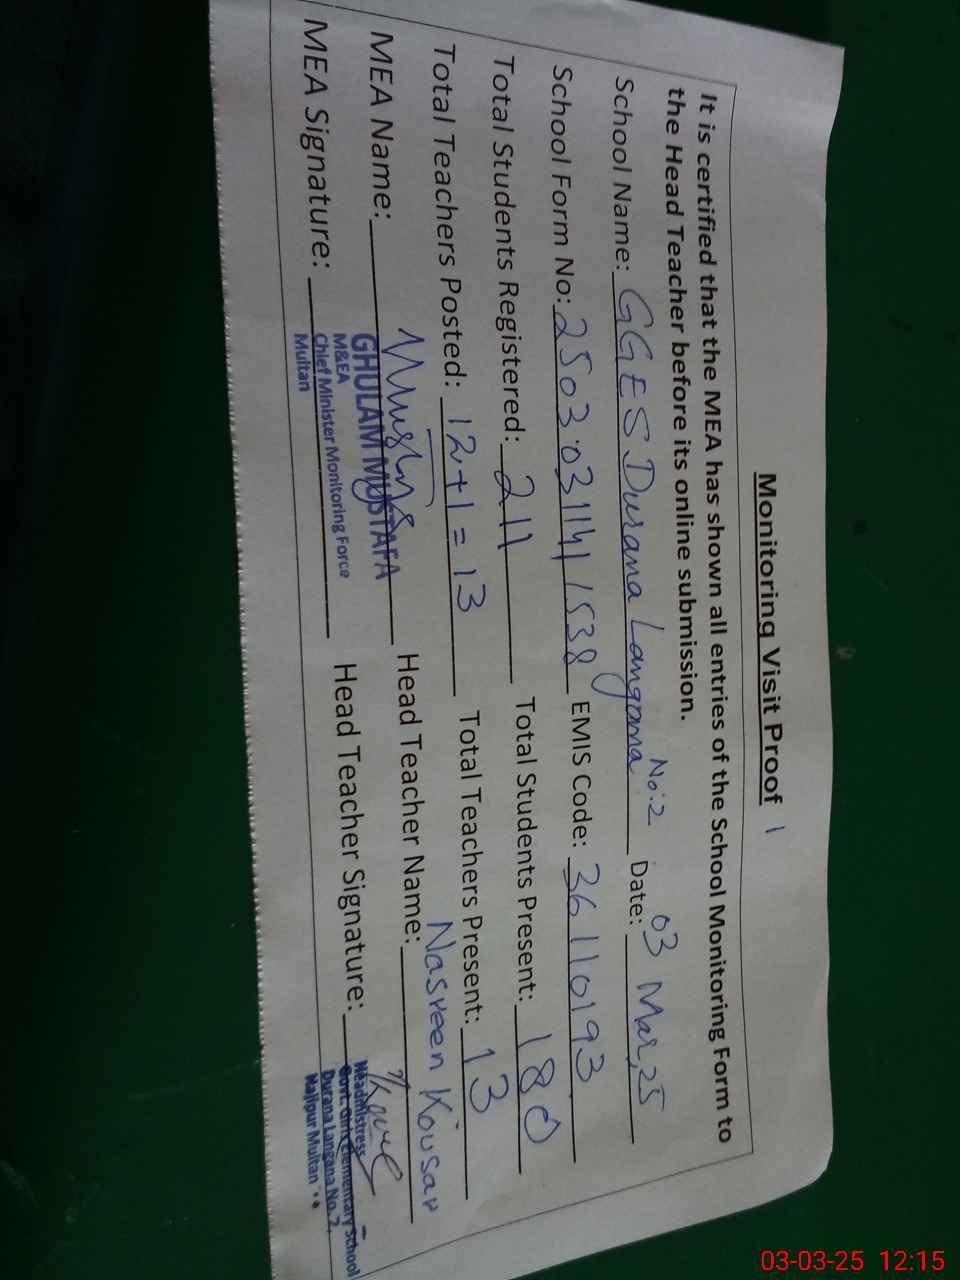 Monitoring Visit Proof 1
It is certified that the MEA has shown all entries of the School Monitoring Form to
the Head Teacher before its online submission.
School Name: GGES Durana Langana No:2 Date: 03 Mar,25
School Form No: 2503031141538 EMIS Code: 36110193
Total Students Registered: 211 Total Students Present: 180
Total Teachers Posted: 12+1=13 Total Teachers Present: 13
MEA Name: Head Teacher Name: Nasreen Kousar
GHULAM MUSTAFA
M&EA
Chief Minister Monitoring Force
Multan
MEA Signature: Head Teacher Signature:
Headmistress
Govt. Girls Elementary School
Durana Langana No. 2,
Hajipur Multan
03-03-25 12:15